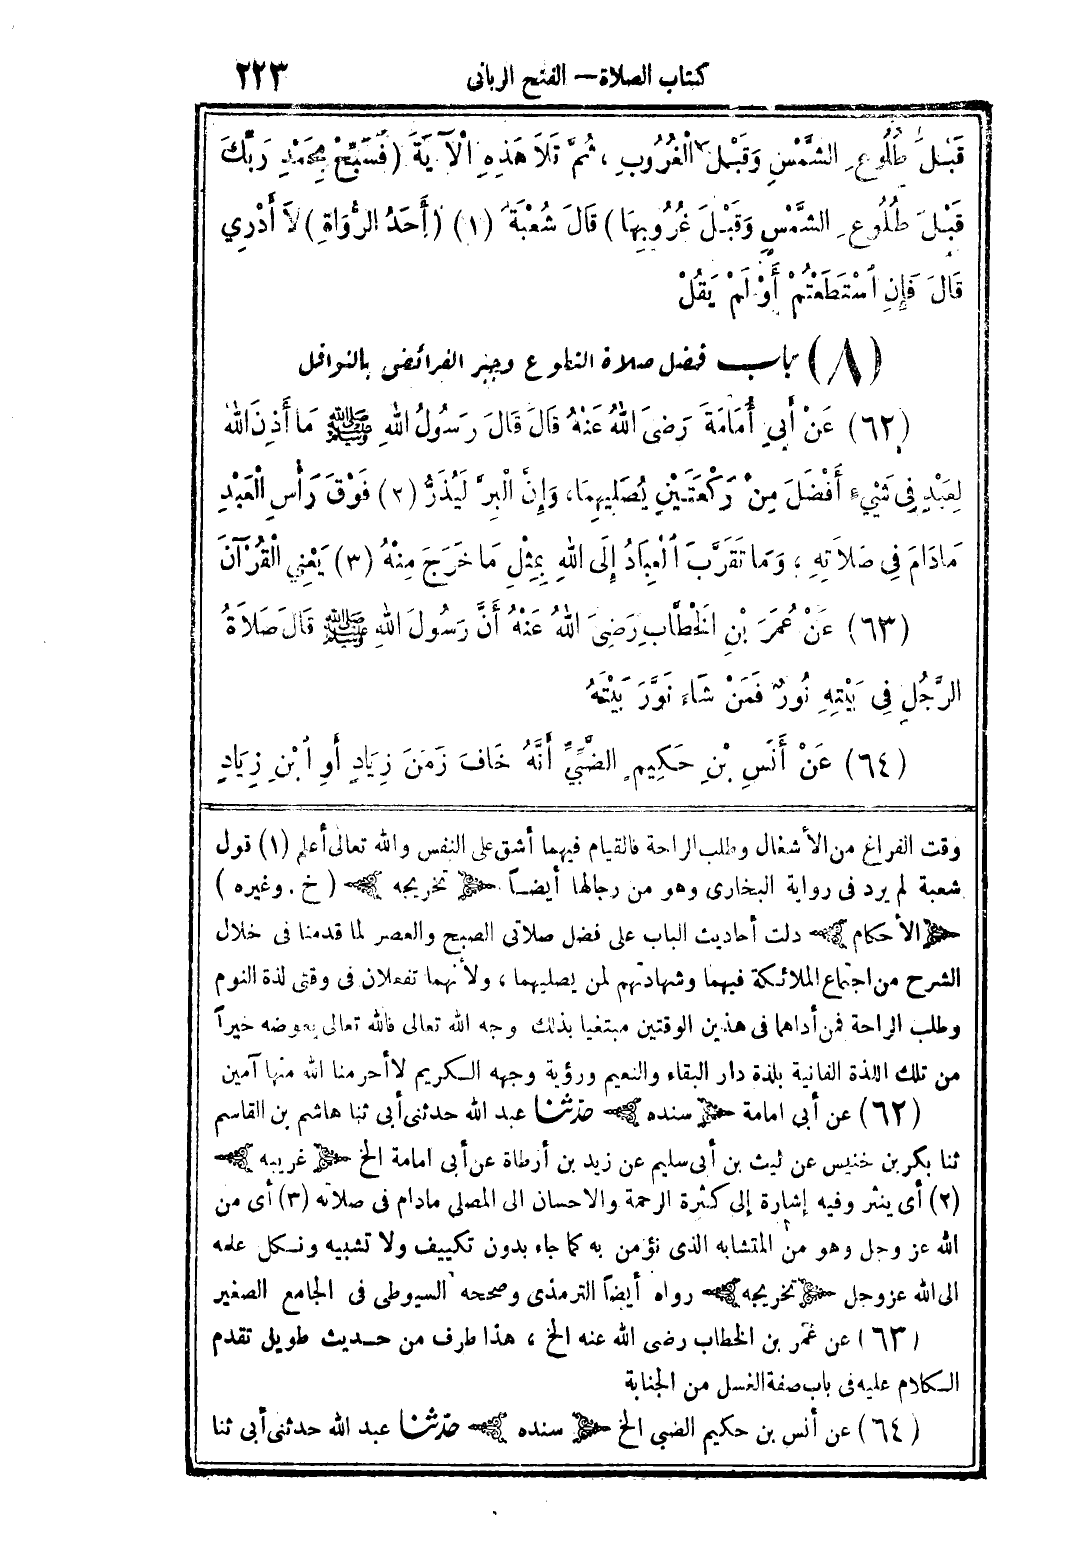 كتاب الصلاة — الفتح الربانى ٢٢٣
قَبْلَ طُلُوعِ الشَّمْسِ وَقَبْلَ الْغُرُوبِ ، ثُمَّ تَلَا هَذِهِ الْآيَةَ (فَسَبِّحْ بِحَمْدِ رَبِّكَ
قَبْلَ طُلُوعِ الشَّمْسِ وَقَبْلَ غُرُوبِهَا) قَالَ شُعْبَةُ (١) (أَحَدُ الرُّوَاةِ) لَا أَدْرِي
قَالَ فَإِنِ اسْتَطَعْتُمْ أَوْ لَمْ يَقُلْ
(٨) باب فضل صلاة التطوع وجبر الفرائض بالنوافل
(٦٢) عَنْ أَبِي أُمَامَةَ رَضِىَ اللهُ عَنْهُ قَالَ قَالَ رَسُولُ اللهِ ﷺ مَا أَذِنَ اللهُ
لِعَبْدٍ فِي شَيْءٍ أَفْضَلَ مِنْ رَكْعَتَيْنِ يُصَلِّيهِمَا، وَإِنَّ الْبِرَّ لَيُذَرُّ (٢) فَوْقَ رَأْسِ الْعَبْدِ
مَادَامَ فِي صَلَاتِهِ ، وَمَا تَقَرَّبَ الْعِبَادُ إِلَى اللهِ بِمِثْلِ مَا خَرَجَ مِنْهُ (٣) يَعْنِي الْقُرْآنَ
(٦٣) عَنْ عُمَرَ بْنِ الْخَطَّابِ رَضِىَ اللهُ عَنْهُ أَنَّ رَسُولَ اللهِ ﷺ قَالَ صَلَاةُ
الرَّجُلِ فِي بَيْتِهِ نُورٌ فَمَنْ شَاءَ نَوَّرَ بَيْتَهُ
(٦٤) عَنْ أَنَسِ بْنِ حَكِيمٍ الضَّبِّيِّ أَنَّهُ خَافَ زَمَنَ زِيَادٍ أَوِ ابْنِ زِيَادٍ
وقت الفراغ من الأشغال وطلب الراحة فالقيام فيهما أشق على النفس والله تعالى أعلم (١) قول
شعبة لم يرد فى رواية البخارى وهو من رجالها أيضاً ﴿تخريجه﴾ (خ . وغيره)
﴿الأحكام﴾ دلت أحاديث الباب على فضل صلاتى الصبح والعصر لما قدمنا فى خلال
الشرح من اجتماع الملائكة فيهما وشهادتهم لمن يصليهما ، ولأنهما تفعلان فى وقتى لذة النوم
وطلب الراحة فمن أداهما فى هذين الوقتين مبتغيا بذلك وجه الله تعالى فالله تعالى يعوضه خيراً
من تلك اللذة الفانية بلذة دار البقاء والنعيم ورؤية وجهه الكريم لا أحرمنا الله منها آمين
(٦٢) عن أبى امامة ﴿سنده﴾ حدثنا عبد الله حدثنى أبى ثنا هاشم بن القاسم
ثنا بكر بن خنيس عن ليث بن أبى سليم عن زيد بن أرطاة عن أبى امامة الخ ﴿غريبه﴾
(٢) أى ينثر وفيه إشارة إلى كثرة الرحمة والاحسان الى المصلى مادام فى صلاته (٣) أى من
الله عز وجل وهو من المتشابه الذى نؤمن به كما جاء بدون تكييف ولا تشبيه ونكل علمه
الى الله عز وجل ﴿تخريجه﴾ رواه أيضاً الترمذى وصححه السيوطى فى الجامع الصغير
(٦٣) عن عمر بن الخطاب رضى الله عنه الخ ، هذا طرف من حديث طويل تقدم
الكلام عليه فى باب صفة الغسل من الجنابة
(٦٤) عن أنس بن حكيم الضبى الخ ﴿سنده﴾ حدثنا عبد الله حدثنى أبى ثنا